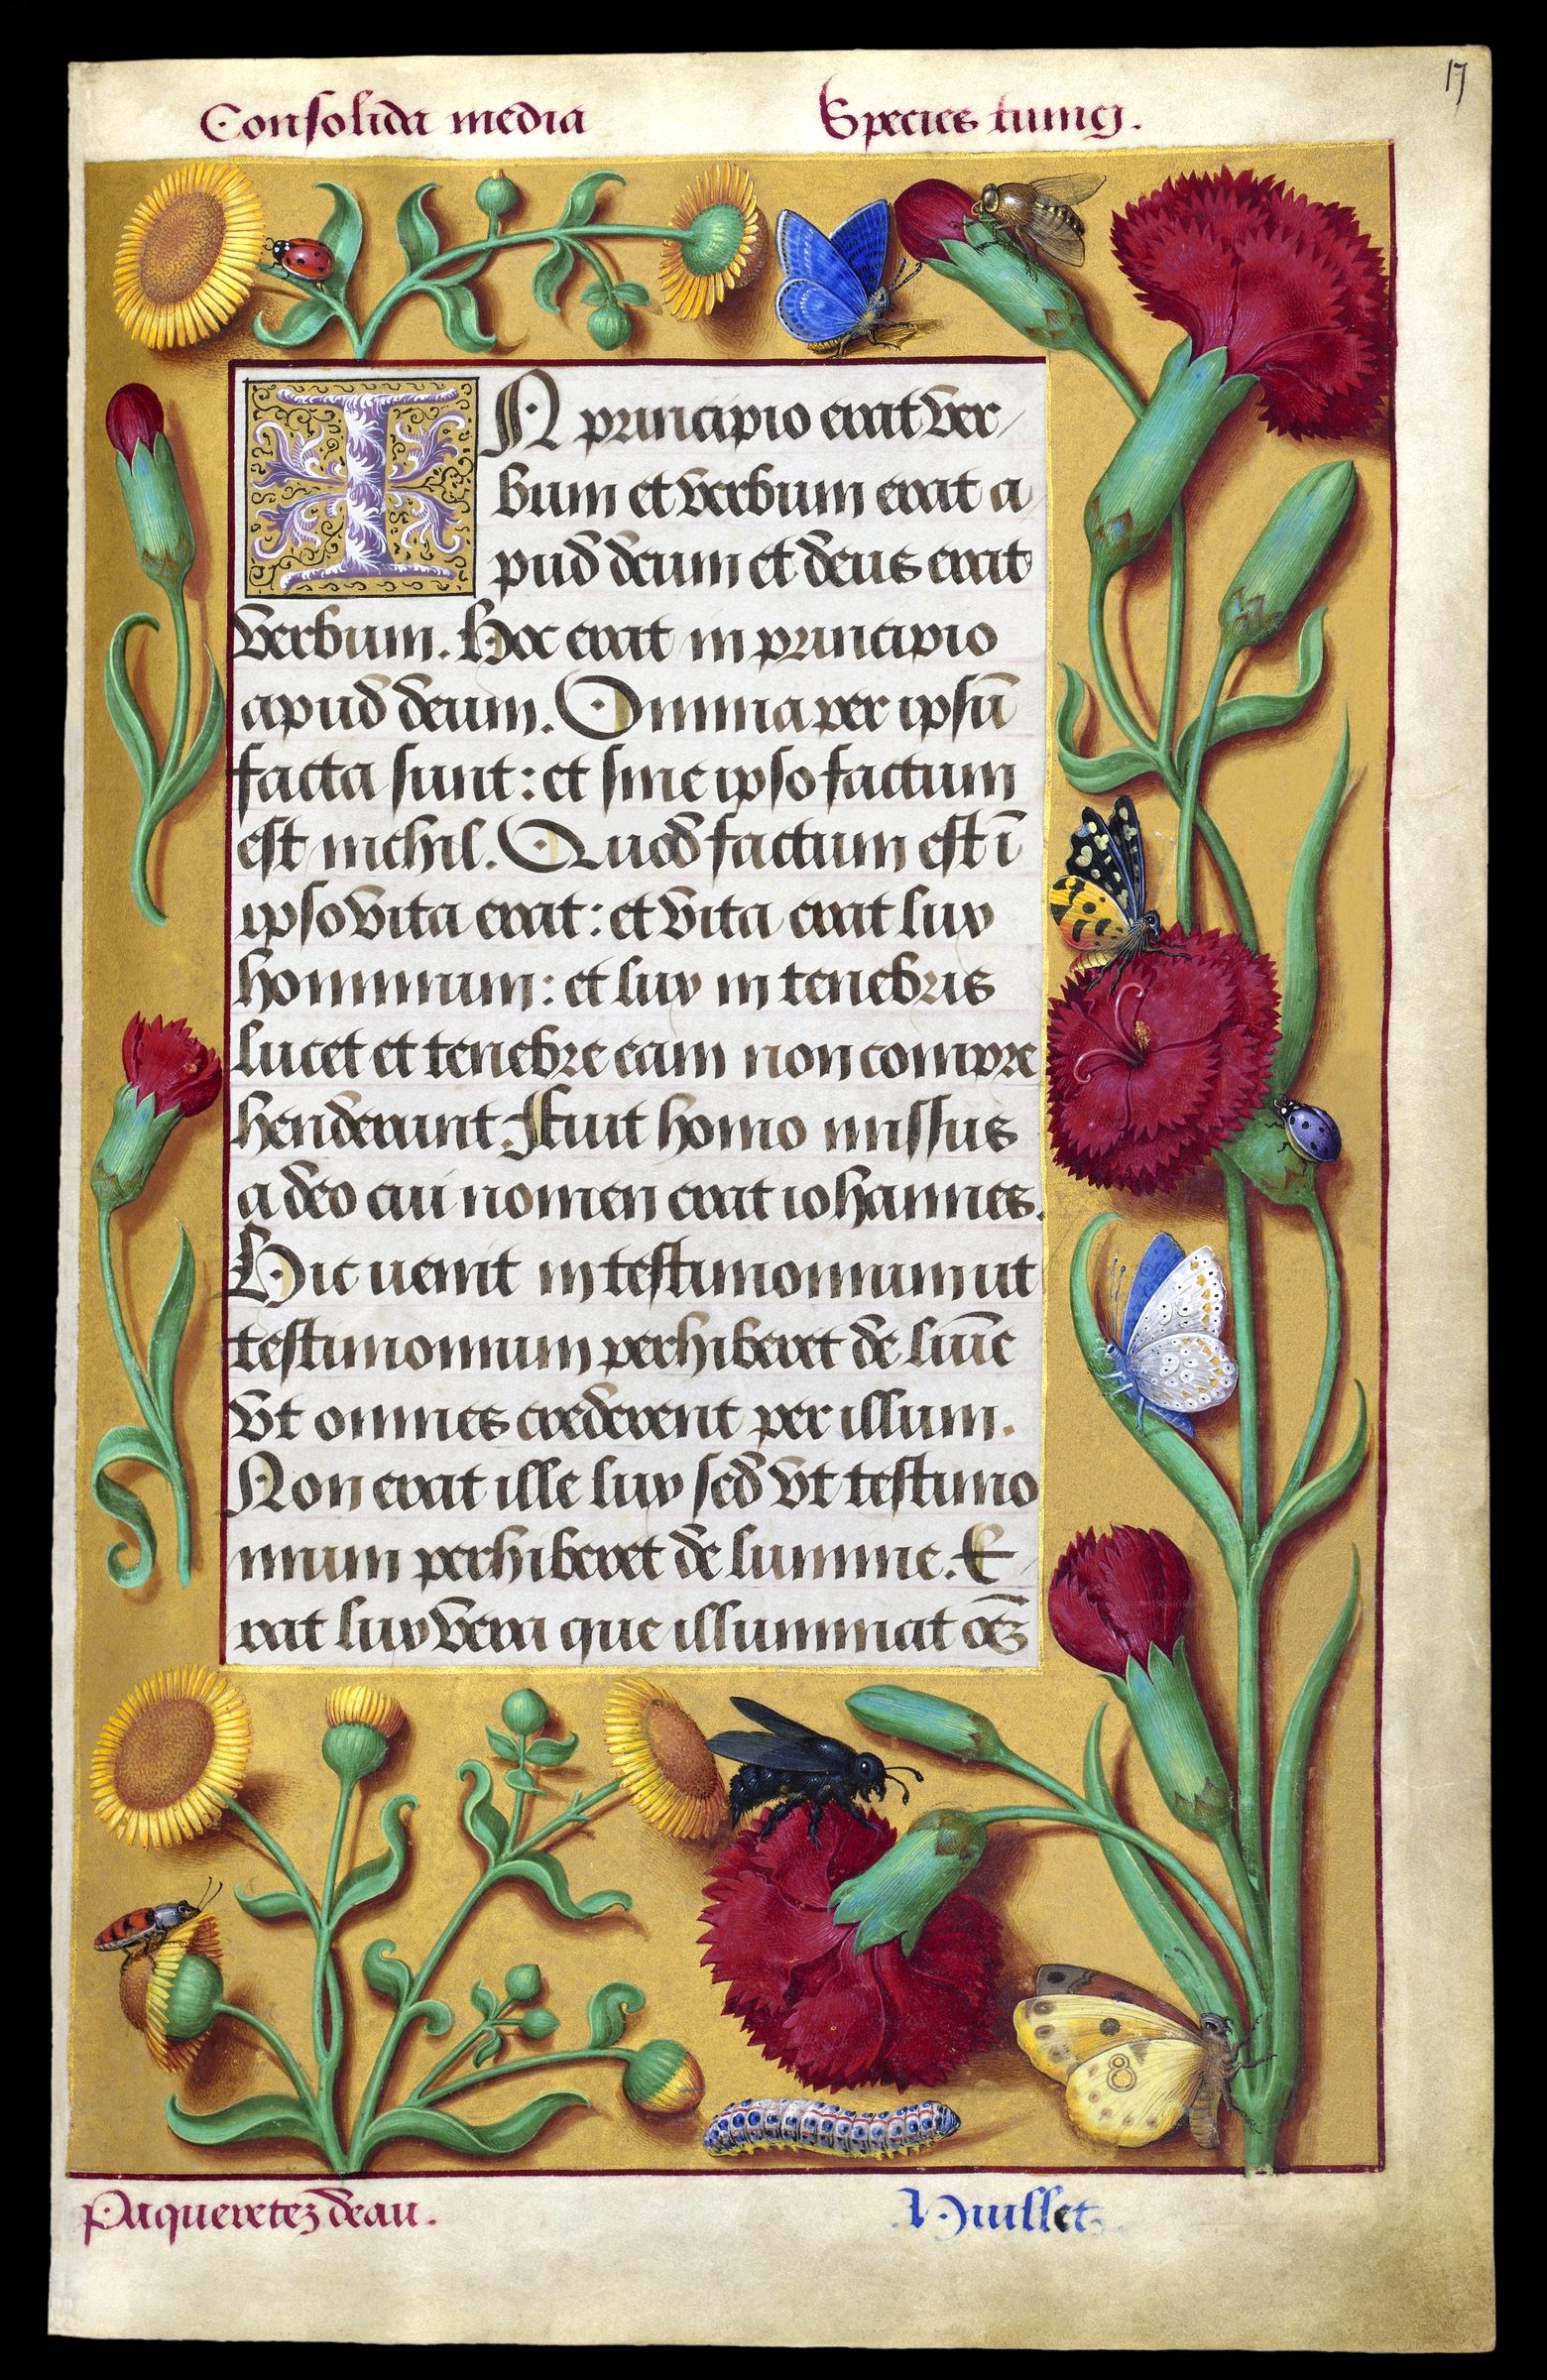 17
Consolida media
Species tunici.
IN principio erat ver
bum et verbum erat a
pud deum et deus erat
verbum. Hoc erat in principio
apud deum. Omnia per ipsū
facta sunt: et sine ipso factum
est nichil. Quod factum est ī
ipso vita erat: et vita erat lux
hominum: et lux in tenebris
lucet et tenebre eam non compre
henderunt. Fuit homo missus
a deo cui nomen erat iohannes.
Hic uenit in testimonium ut
testimonium perhiberet de lumīe
vt omnes crederent per illum.
Non erat ille lux sed vt testimo
nium perhiberet de lumine. E
rat lux vera que illuminat oēz
Paqueretez deau.